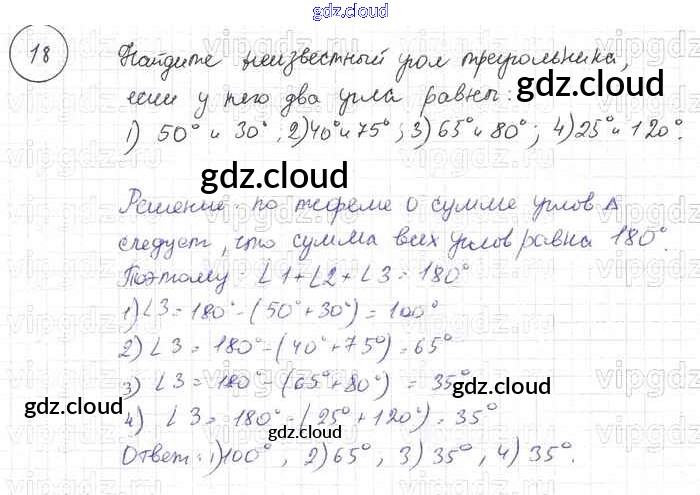 gdz.cloud
18 Найдите неизвестный угол треугольника,
если у него два угла равны:
1) 50° и 30°; 2) 40° и 75°; 3) 65° и 80°; 4) 25° и 120°.
gdz.cloud
gdz.cloud
Решение: по теореме о сумме углов Δ
следует, что сумма всех углов равна 180°.
Поэтому: ∠1+∠2+∠3=180°
1) ∠3=180°-(50°+30°)=100°
gdz.cloud
2) ∠3=180°-(40°+75°)=65°
3) ∠3=180°-(65°+80°)=35°
gdz.cloud
gdz.cloud
4) ∠3=180°-(25°+120°)=35°
gdz.cloud
Ответ: 1) 100°, 2) 65°, 3) 35°, 4) 35°.